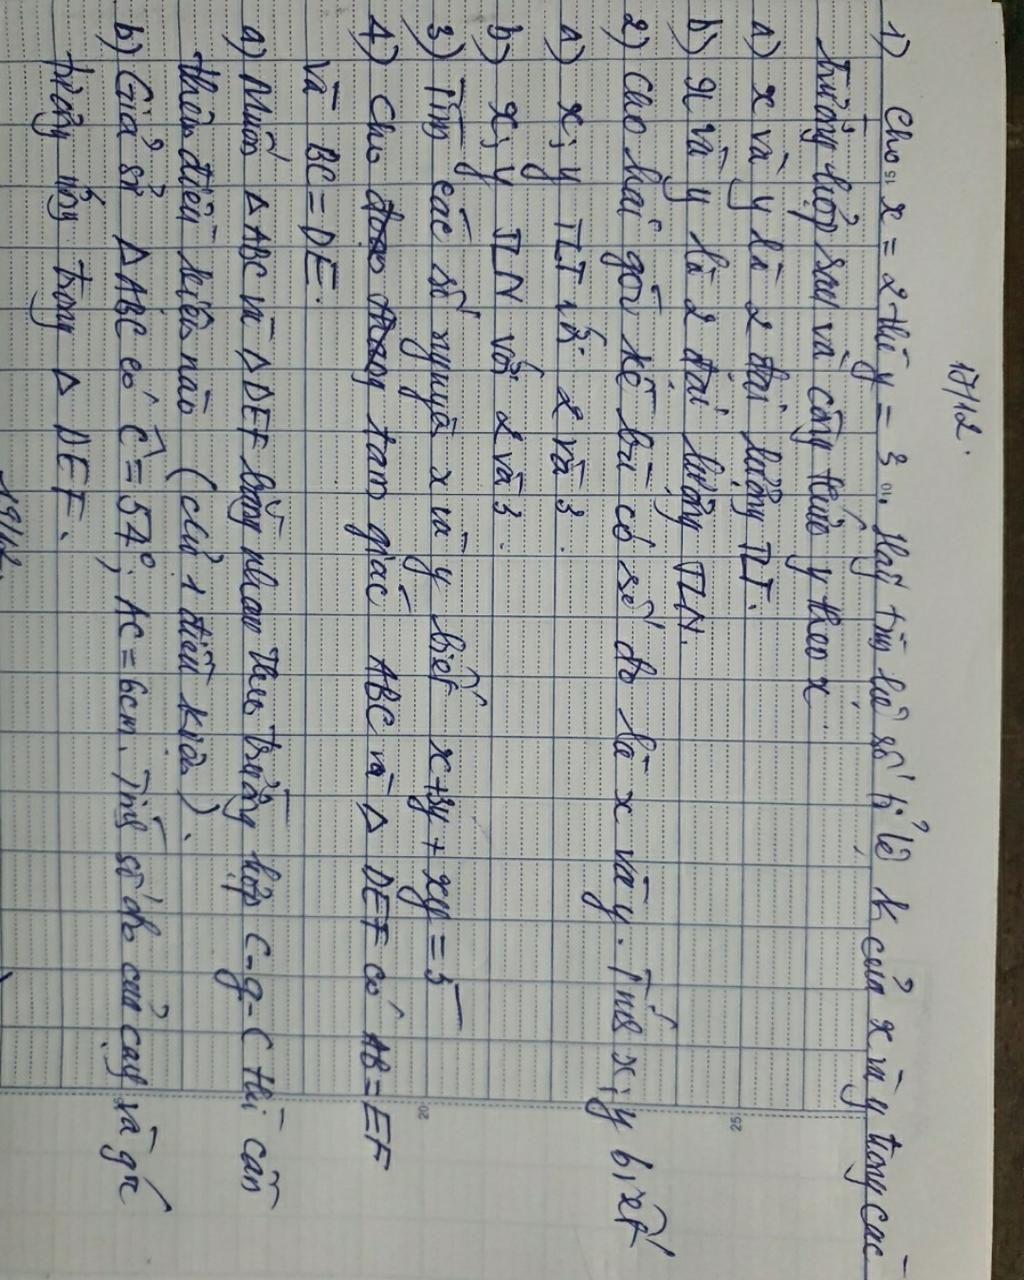 17/12.
1) Cho x = 2 thì y = 3. Hãy tìm hệ số tỉ lệ k của x và y trong các
trường hợp sau và công thức y theo x.
a) x và y là 2 đại lượng TLT.
b) x và y là 2 đại lượng TLN.
2) Cho hai góc kề bù có số đo là x và y. Tính x; y biết
a) x; y TLT với 2 và 3.
b) x; y TLN với 2 và 3.
3) Tìm các số nguyên x và y biết x + 3y + xy = 5
4) Cho tam giác ABC và Δ DEF có AB = EF
và BC = DE.
a) Muốn Δ ABC và Δ DEF bằng nhau theo trường hợp c-g-c thì cần
thêm điều kiện nào (chỉ 1 điều kiện).
b) Giả sử Δ ABC có Ĉ = 54°; AC = 6cm. Tính số đo của cạnh và góc
tương ứng trong Δ DEF.
19/12.